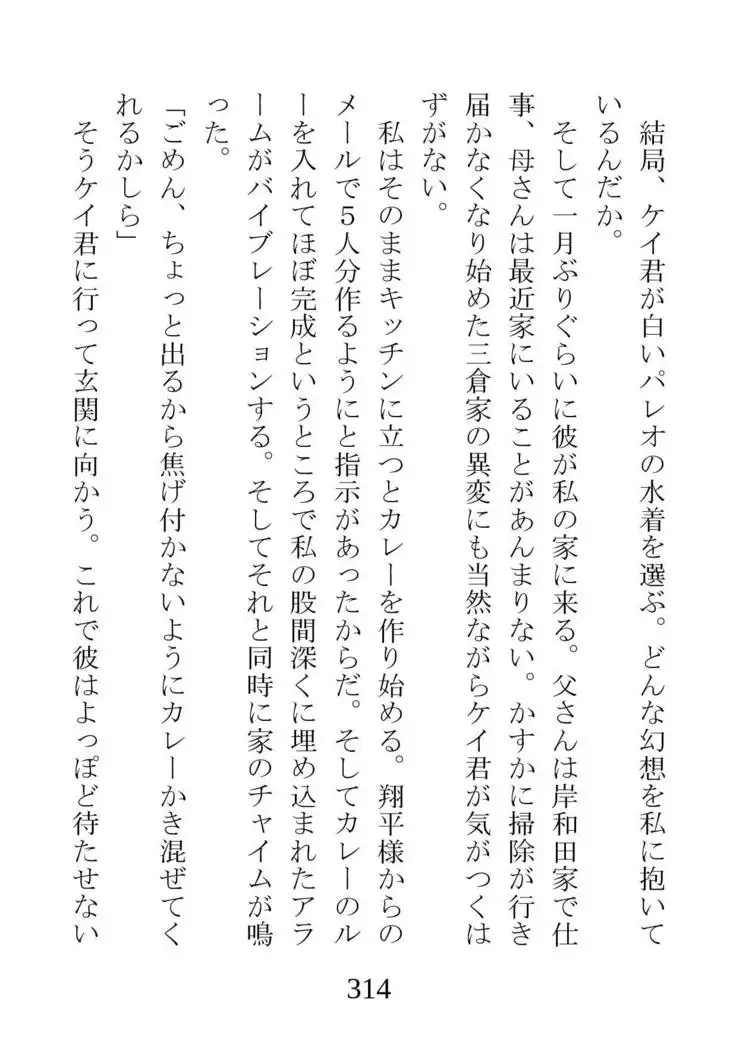 結局、ケイ君が白いパレオの水着を選ぶ。どんな幻想を私に抱いて
いるんだか。
そして一月ぶりぐらいに彼が私の家に来る。父さんは岸和田家で仕
事、母さんは最近家にいることがあんまりない。かすかに掃除が行き
届かなくなり始めた三倉家の異変にも当然ながらケイ君が気がつくは
ずがない。
私はそのままキッチンに立つとカレーを作り始める。翔平様からの
メールで５人分作るようにと指示があったからだ。そしてカレーのル
ーを入れてほぼ完成というところで私の股間深くに埋め込まれたアラ
ームがバイブレーションする。そしてそれと同時に家のチャイムが鳴
った。
「ごめん、ちょっと出るから焦げ付かないようにカレーかき混ぜてく
れるかしら」
そうケイ君に行って玄関に向かう。これで彼はよっぽど待たせない
314